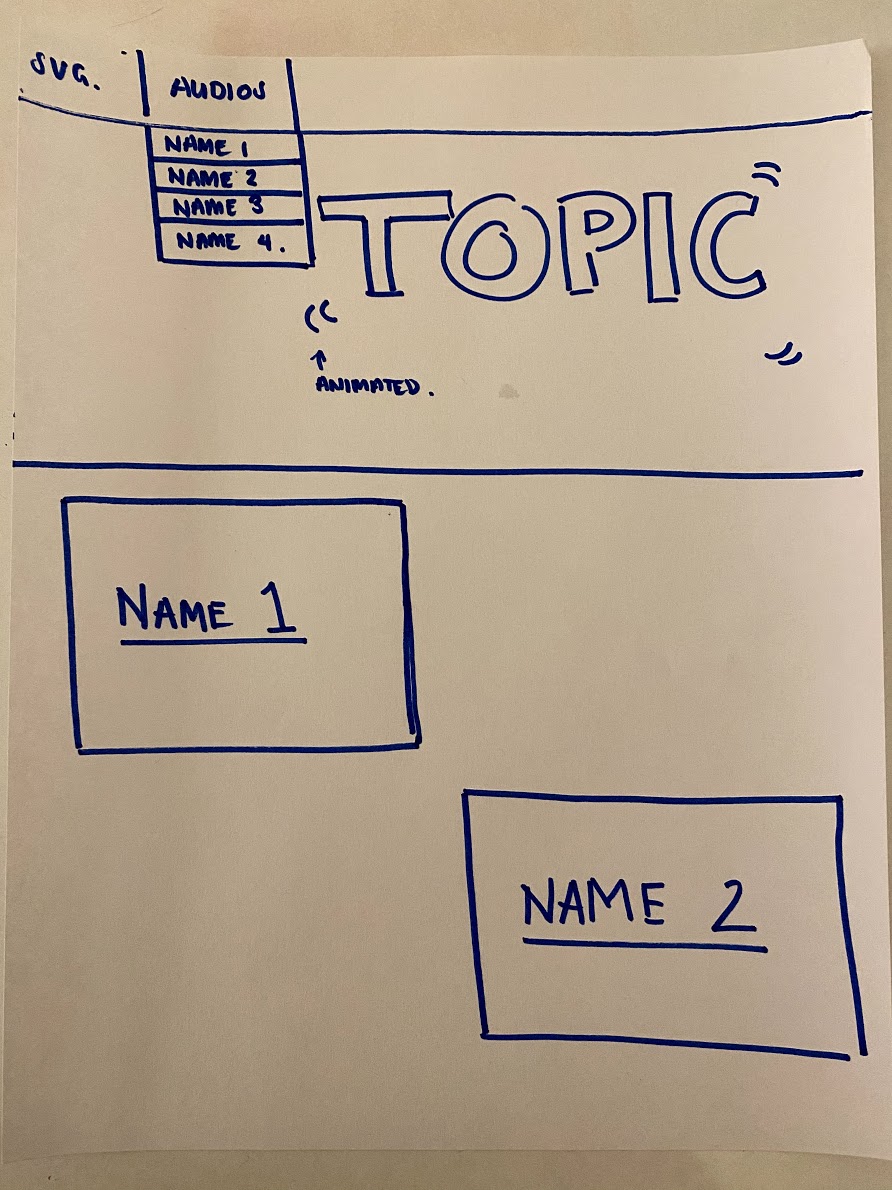 SVG.
AUDIOS
NAME 1
NAME 2
NAME 3
NAME 4.
TOPIC
ANIMATED.
NAME 1
NAME 2